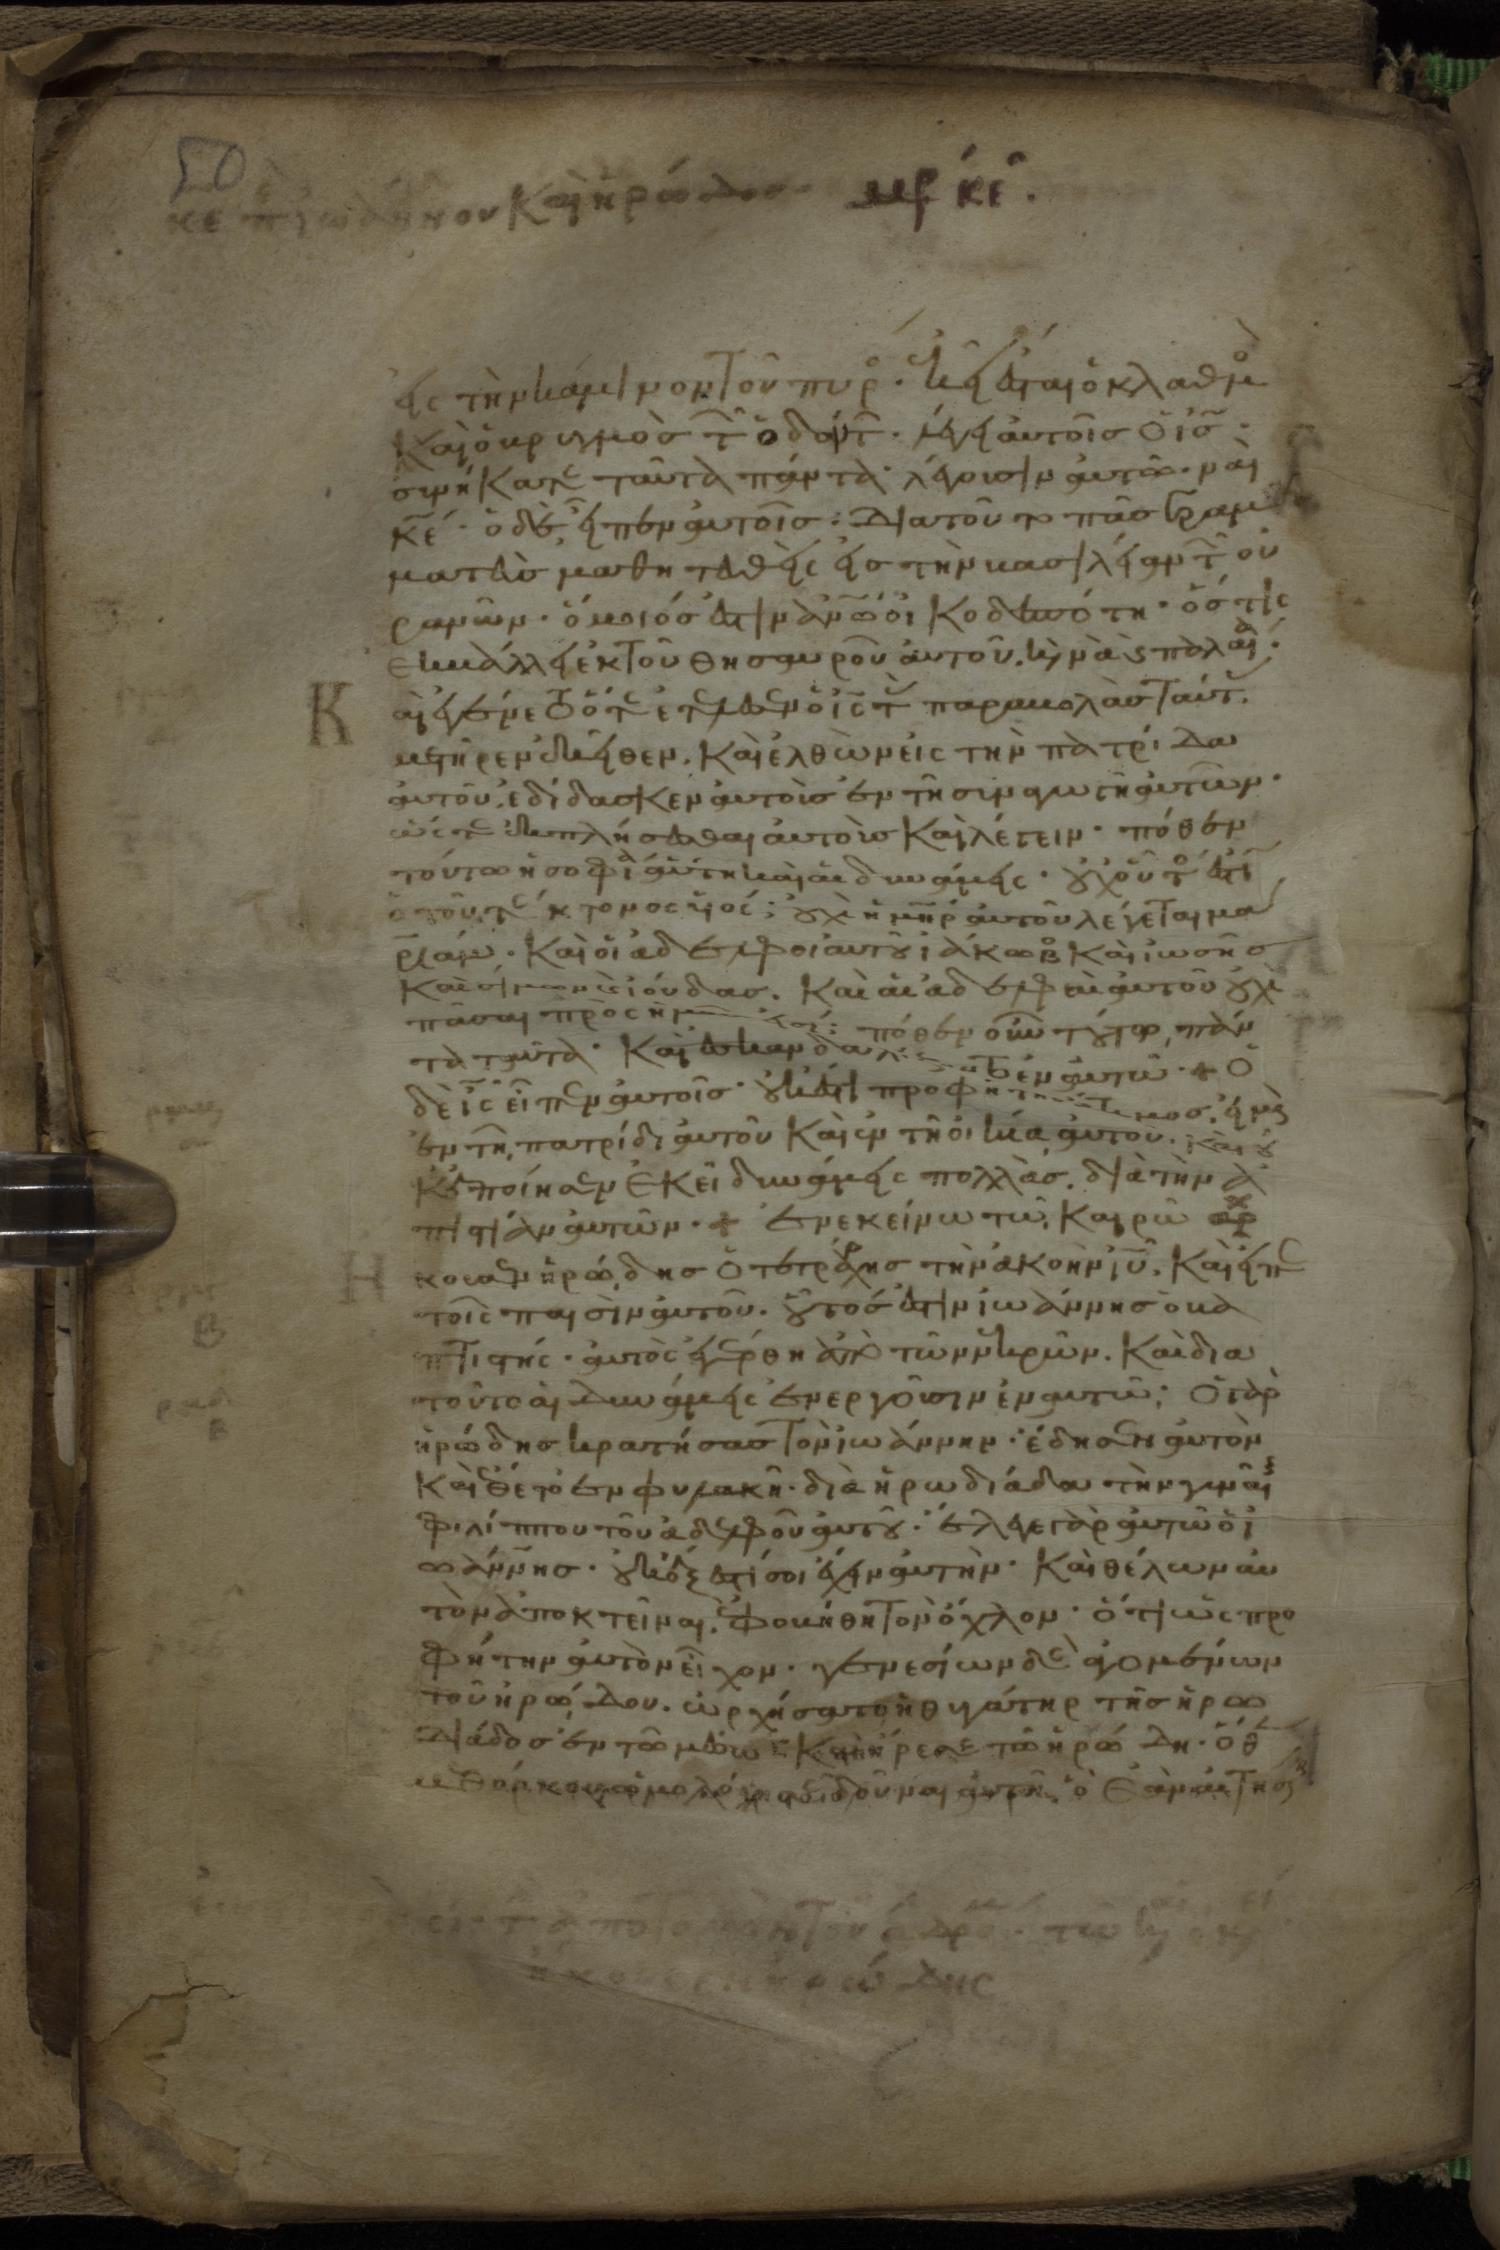 50
κε π ιωάννου Καὶ ἡρώδου μρ κε.
εἰς τὴν κάμινον τοῦ πυρ. ἐκεῖ ἔσται ὁ κλαθμ
Καὶ ὁ βρυγμὸσ τ ὀδόντ. λέγει αὐτοῖσ ὁ ισ.
συνήκατε ταῦτα πάντα. λέγουσιν αὐτῶ. ναὶ
κε. ὁ δὲ εἶπεν αὐτοῖσ. Διατοῦτο πᾶσ γραμ
ματεὺσ μαθητευθεὶς εἰσ τὴν βασιλείαν τ οὐ
ρανῶν. ὅμοιόσ ἐστιν ἀνω οἰκοδεσπότη. ὅστις
ἐκβάλλει ἐκ τοῦ θησαυροῦ αὐτοῦ. καινὰ καὶ παλαιά.
Καὶ ἐγένετο ὅτε ἐτέλεσεν ὁ ις τ παραβολὰσ ταύτ.
μετῆρεν ἐκεῖθεν. Καὶ ἐλθὼν εἰς τὴν πατρίδα
αὐτοῦ. ἐδίδασκεν αὐτοὺσ ἐν τῆ συναγωγῆ αὐτῶν.
ὥστε ἐκπλήσσεσθαι αὐτοὺσ Καὶ λέγειν. πόθεν
τούτω ἡ σοφία αὕτη καὶ αἱ δυνάμεις. οὐχ οὗτός ἐστι
ὁ τοῦ τέκτονοσ υἱός; οὐχὶ ἡ μηρ αὐτοῦ λέγεται μα
ριάμ. Καὶ οἱ ἀδελφοὶ αὐτοῦ ἰάκωβο Καὶ ἰωσῆσ
Καὶ σίμων καὶ ἰούδασ. Καὶ αἱ ἀδελφαὶ αὐτοῦ οὐχὶ
πᾶσαι πρὸς ἡμᾶς εἰσί; πόθεν οὖν τούτω πάν
τα ταῦτα. Καὶ ἐσκανδαλίζοντο ἐν αὐτῶ. + Ὁ
δὲ ις εἶπεν αὐτοῖσ. οὐκ ἔστι προφήτης ἄτιμοσ. εἰ μὴ
ἐν τῆ πατρίδι αὐτοῦ Καὶ ἐν τῆ οἰκία αὐτοῦ. Καὶ οὐ
κ ἐποίησεν ἐκεῖ δυνάμεις πολλὰσ. διὰ τὴν ἀ
πιστίαν αὐτῶν. + ἐν ἐκείνω τῶ καιρῶ
Ηκουσεν ἡρώδησ ὁ τετράρχησ τὴν ἀκοὴν ιυ. Καὶ εἶπε
τοῖς παισὶν αὐτοῦ. οὗτόσ ἐστιν ἰωάννησ ὁ βα
πτιστής. αὐτὸς ἠγέρθη ἀπὸ τῶν νεκρῶν. Καὶ δια
τοῦτο αἱ δυνάμεις ἐνεργοῦσιν ἐν αὐτῶ. Ὁ γὰρ
ἡρώδησ κρατήσασ τὸν ἰωάννην. ἔδησεν αὐτὸν
Καὶ ἔθετο ἐν φυλακῆ. διὰ ἡρωδιάδα τὴν γυναῖκα
φιλίππου τοῦ ἀδελφοῦ αὐτοῦ. ἔλεγε γὰρ αὐτῶ ὁ ἰ
ωάννησ. οὐκ ἔξεστί σοι ἔχειν αὐτὴν. Καὶ θέλων αὐ
τὸν ἀποκτεῖναι. ἐφοβήθη τὸν ὄχλον. ὅτι ὡς προ
φήτην αὐτὸν εἶχον. γενεσίων δὲ ἀγομένων
τοῦ ἡρώδου. ὠρχήσατο ἡ θυγάτηρ τῆσ ἡρω
διάδοσ ἐν τῶ μέσω Καὶ ἤρεσε τῶ ἡρώδη. ὅθε
μεθ ὅρκου ὡμολόγησεν αὐτῆ δοῦναι ὃ ἐὰν αἰτήση
ἤκουσεν ἡρώδης